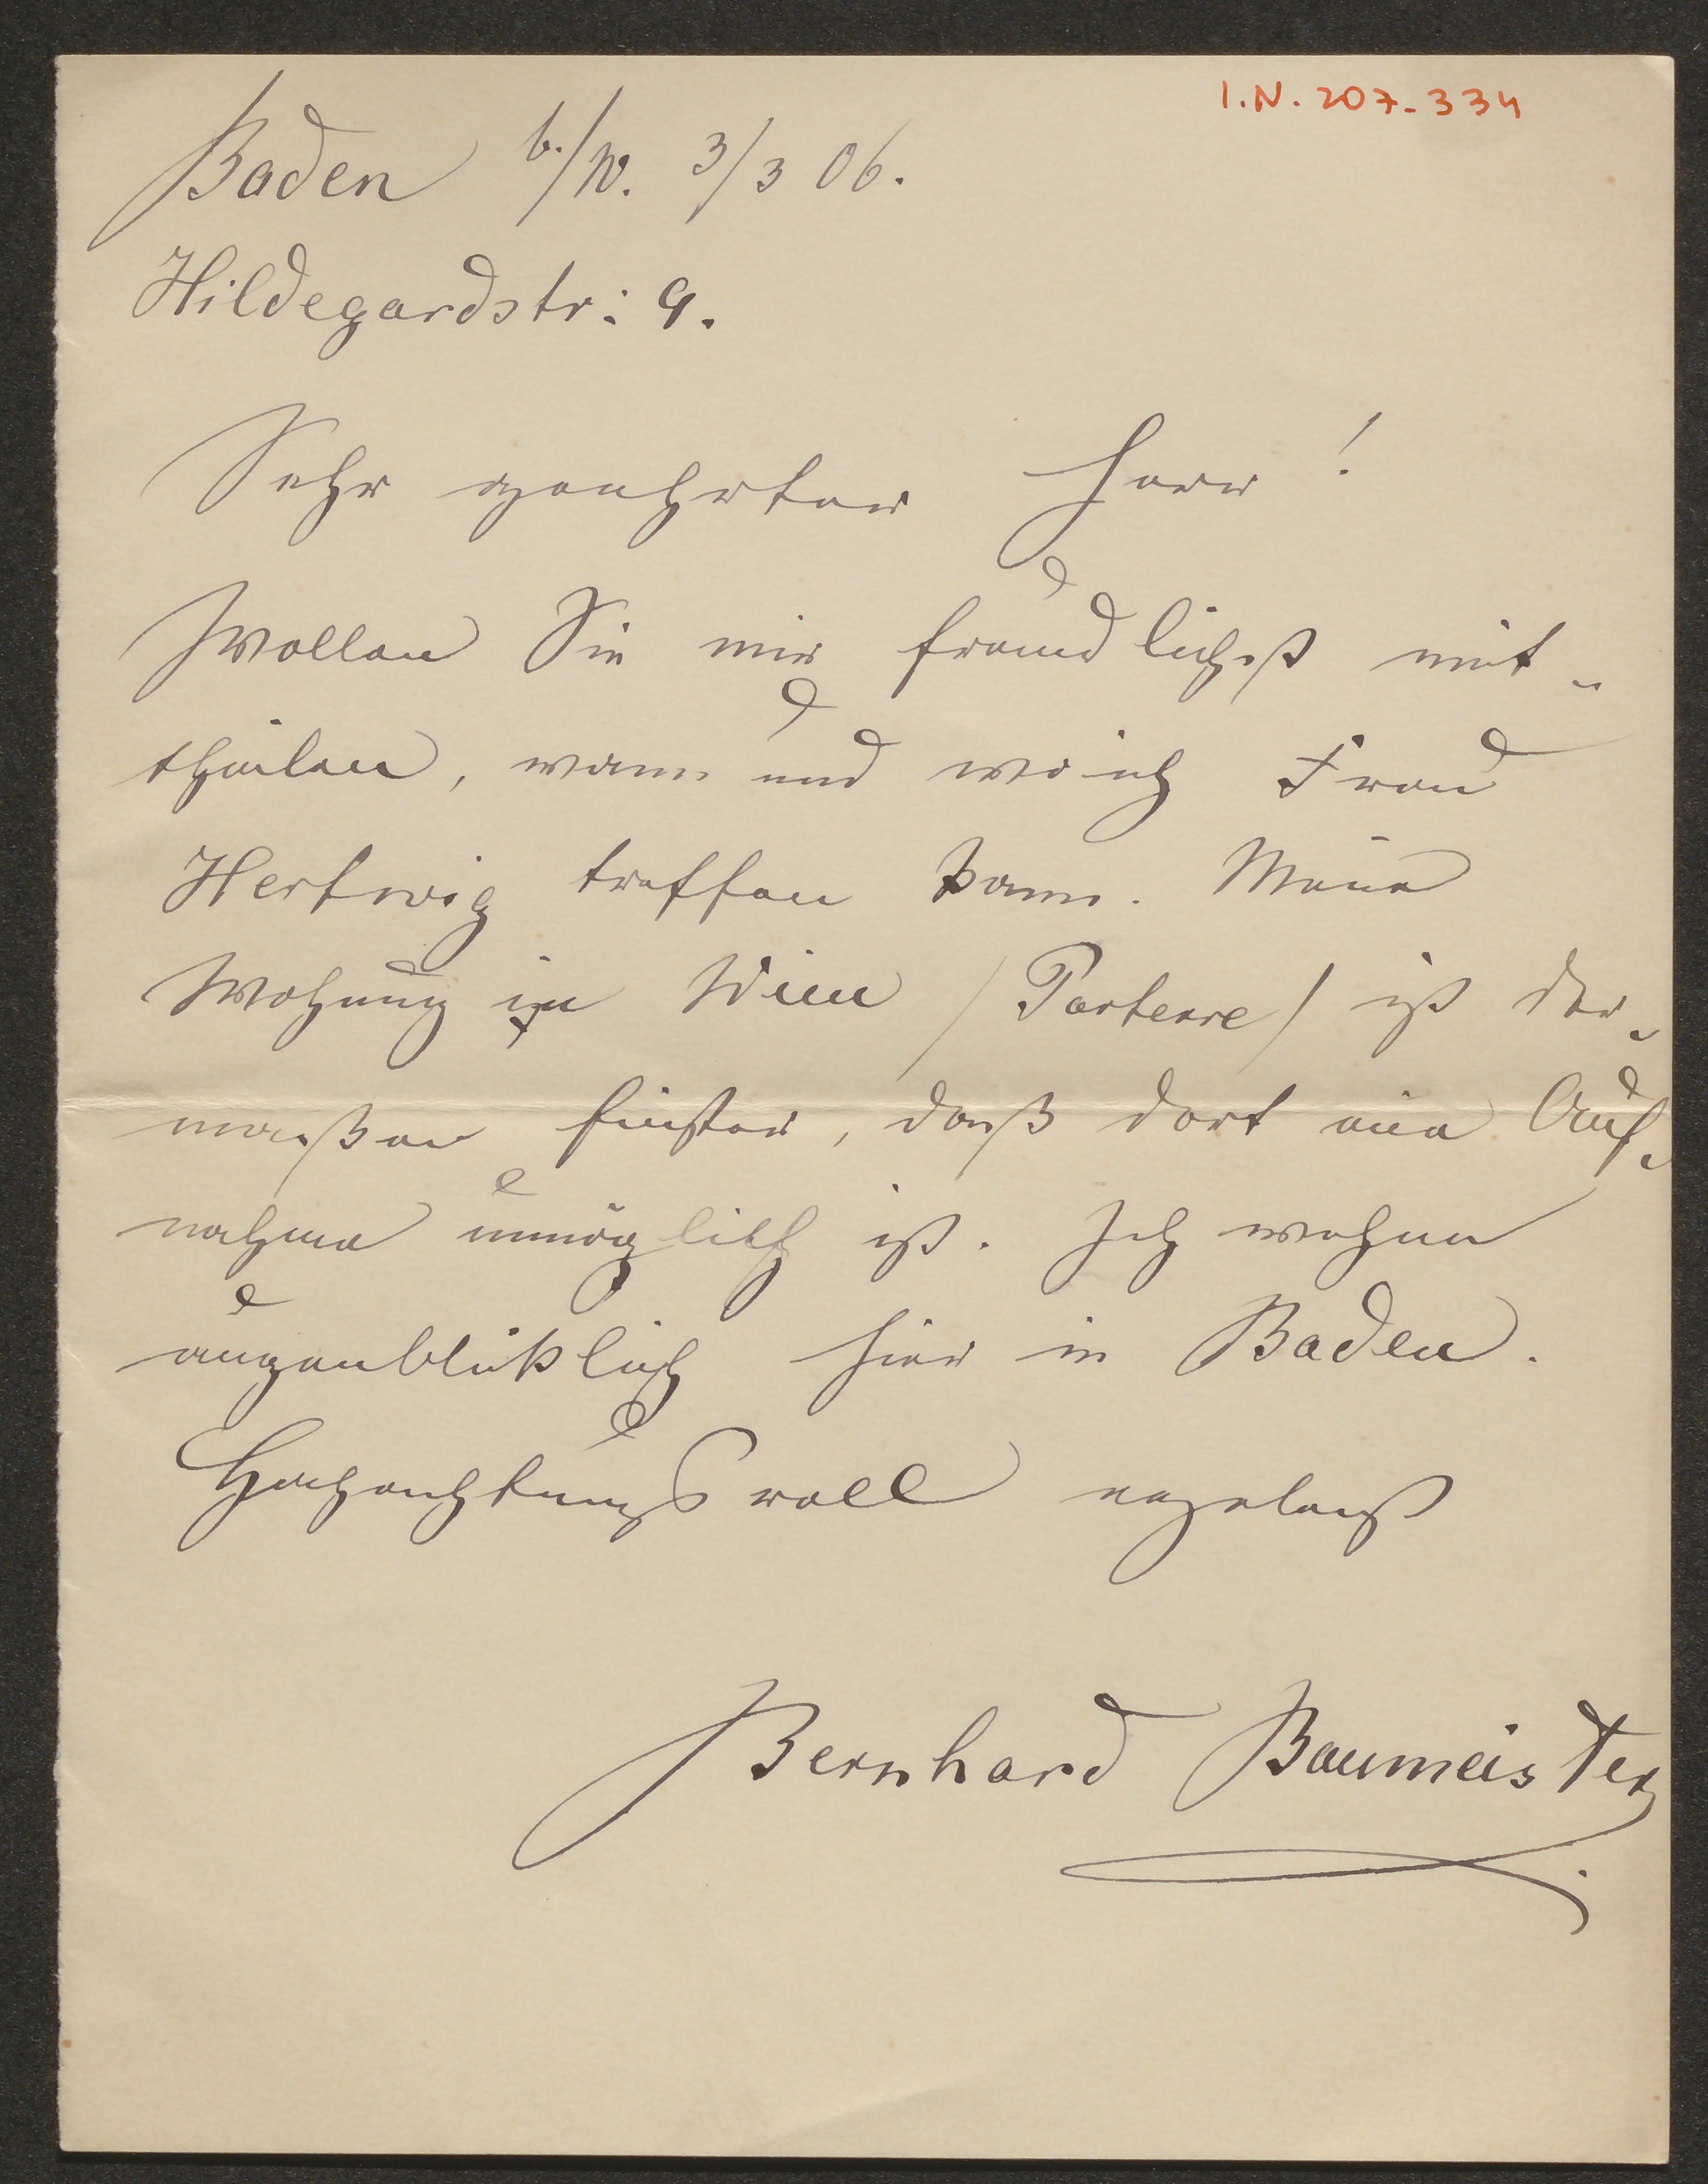 I.N. 207.334
Baden b./W. 3/3 06.
Hildegardstr: 9.
Sehr geehrter Herr!
Wollen Sie mir freundlichst mit-
theilen, wann und wo ich Frau
Hertwig treffen kann. Meine
Wohnung in Wien / Parterre / ist der-
maßen finster, daß dort eine Auf-
nahme unmöglich ist. Ich wohne
augenblicklich hier in Baden.
Hochachtungsvoll ergebenst
Bernhard Baumeister